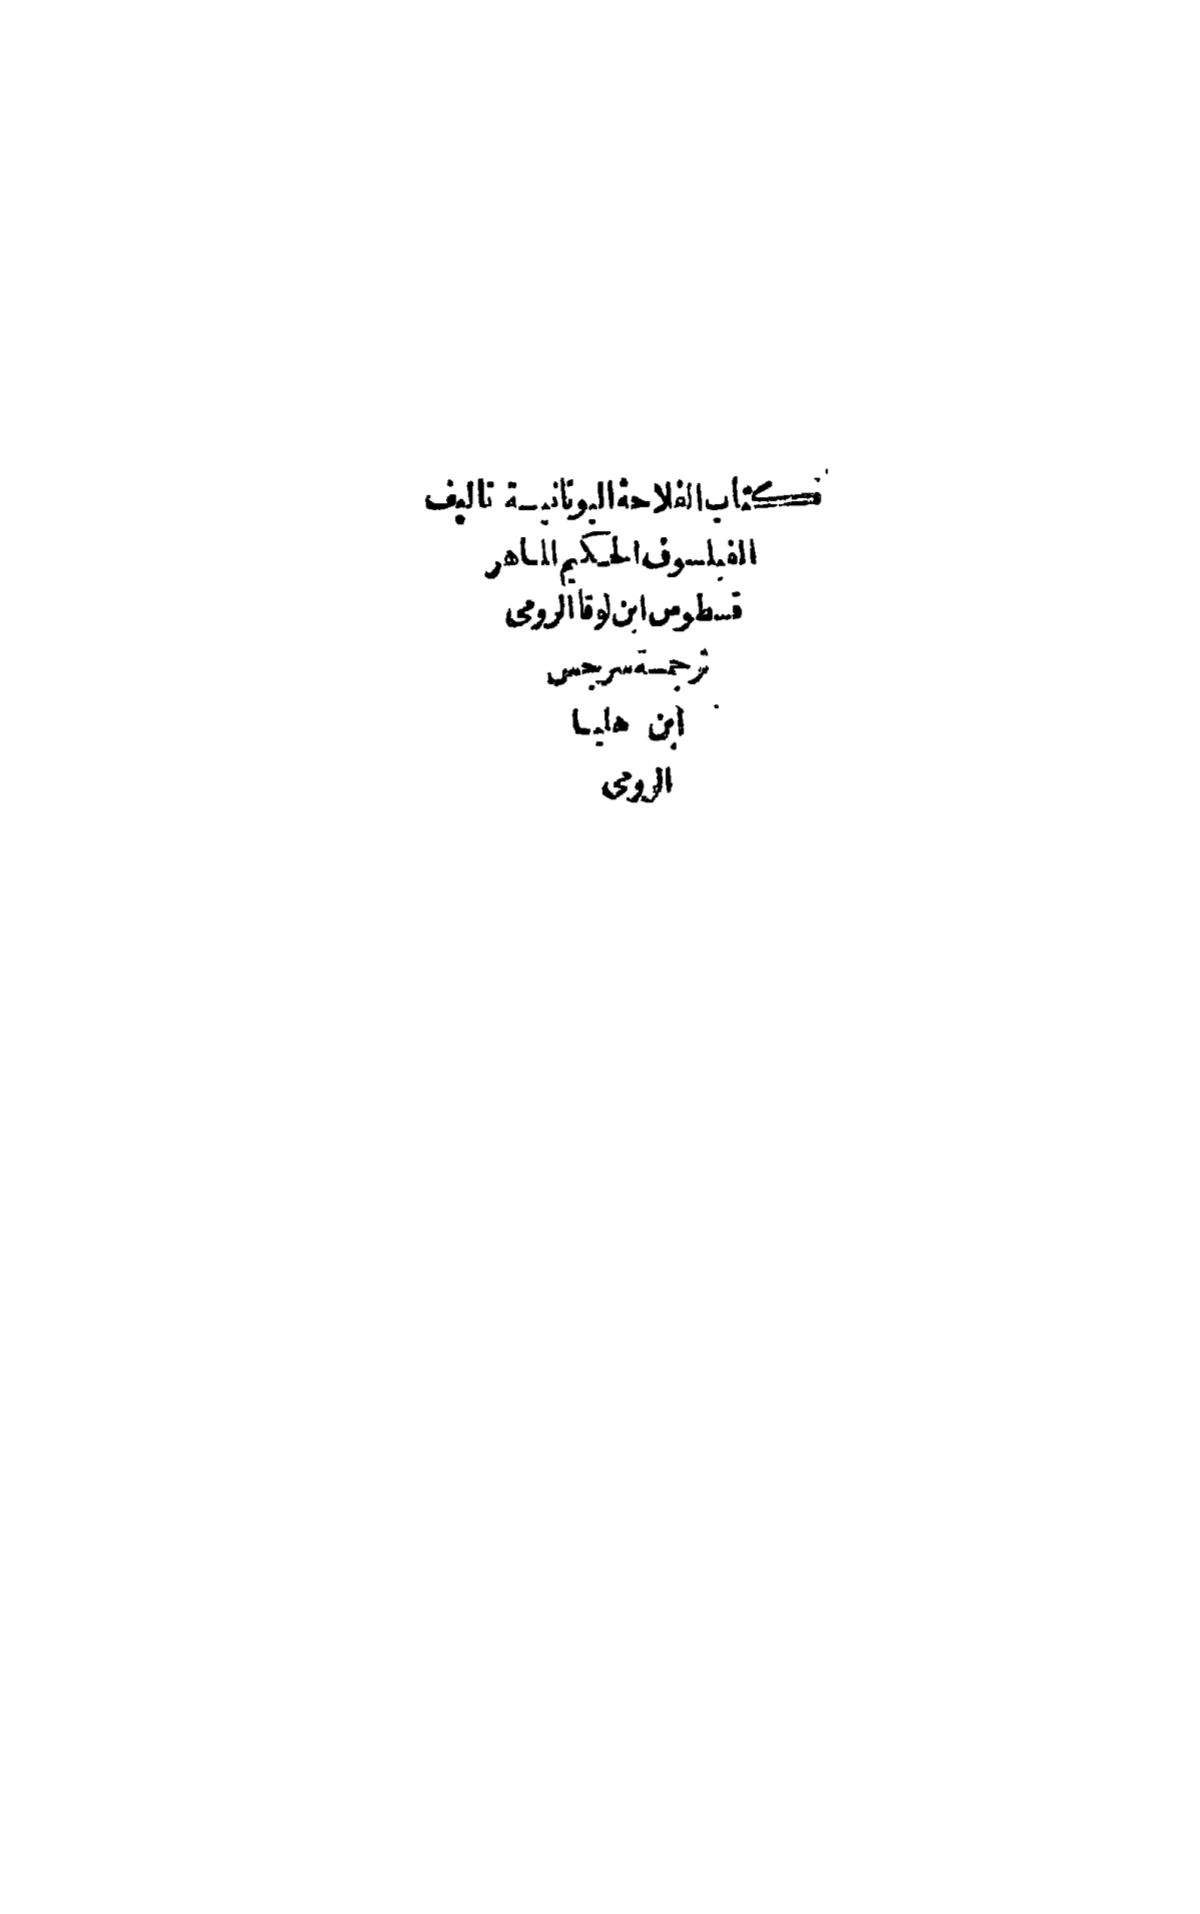 كتاب الفلاحة اليونانية تاليف
الفيلسوف الحكيم الماهر
قسطوس ابن لوقا الرومى
ترجمة سرجس
ابن هليا
الرومى